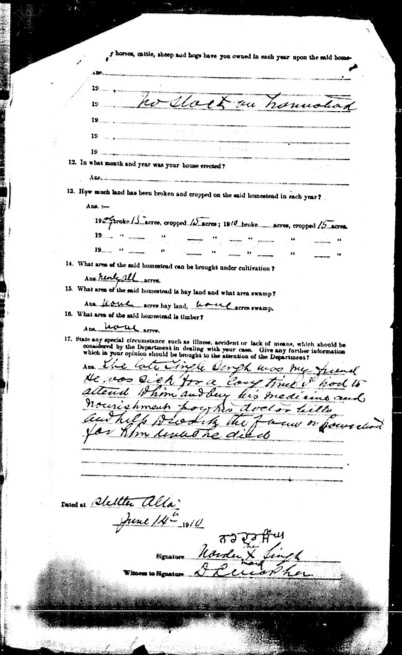 horses, cattle, sheep and hogs have you owned in each year upon the said home-
19
19 No Stock on homestead
19
19
19
12. In what month and year was your house erected?
Ans.
13. How much land has been broken and cropped on the said homestead in each year?
Ans :—
broke 15 acres, cropped 15 acres; 1910 broke acres, cropped 15 acres.
19 " " " "
19 " " " "
14. What area of the said homestead can be brought under cultivation?
Ans. nearly all acres.
15. What area of the said homestead is hay land and what area swamp?
Ans. none acres hay land, none acres swamp.
16. What area of the said homestead is timber?
Ans. none acres.
17. State any special circumstance such as illness, accident or lack of means, which should be
considered by the Department in dealing with your case. Give any further information
which in your opinion should be brought to the attention of the Department?
Ans. The late Singh was my friend
He was sick for a long time I had to
attend to him and buy his medicine and
nourishment pay his doctor bills
and help to work the farm or homestead
for him until he died
Dated at Alta
June 14th 1910
Signature Singh
mark
Witness to Signature